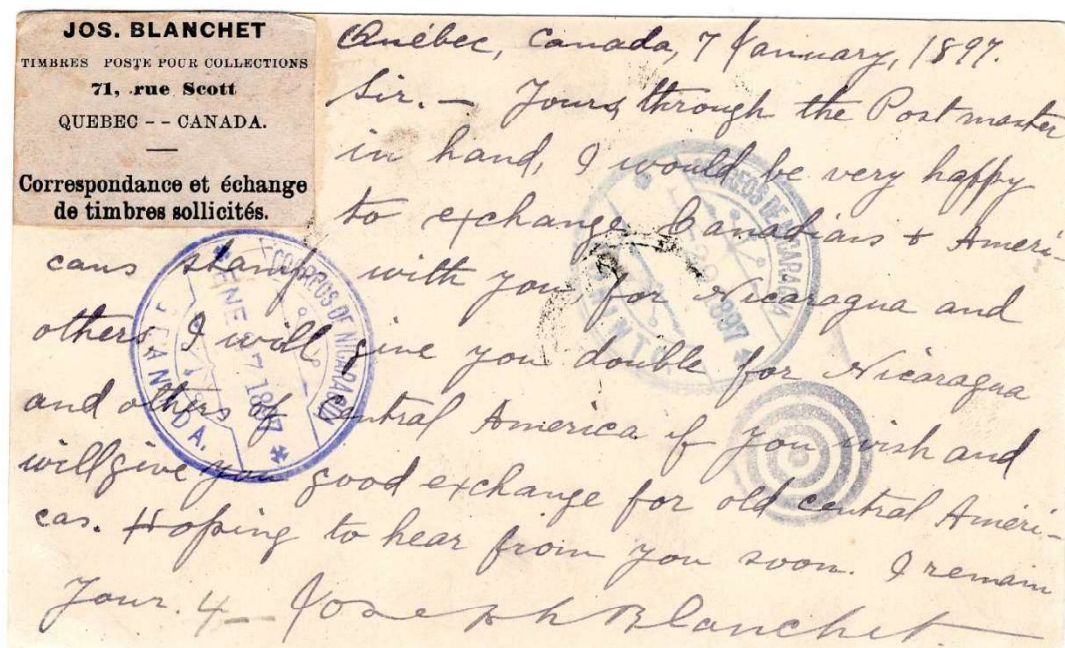 JOS. BLANCHET
TIMBRES POSTE POUR COLLECTIONS
71, rue Scott
QUEBEC -- CANADA.
Correspondance et échange
de timbres sollicités.
Québec, Canada, 7 January, 1897.
Sir. — Yours, through the Postmaster
in hand, I would be very happy
to exchange Canadians + Ameri-
cans stamps with you, for Nicaragua and
others. I will give you double for Nicaragua
and others of Central America if you wish and
will give you good exchange for old central Ameri-
cas. Hoping to hear from you soon. I remain
Your. 4— Joseph Blanchet
CORREOS DE NICARAGUA
ENE 27 1897
CORREOS DE NICARAGUA
1897